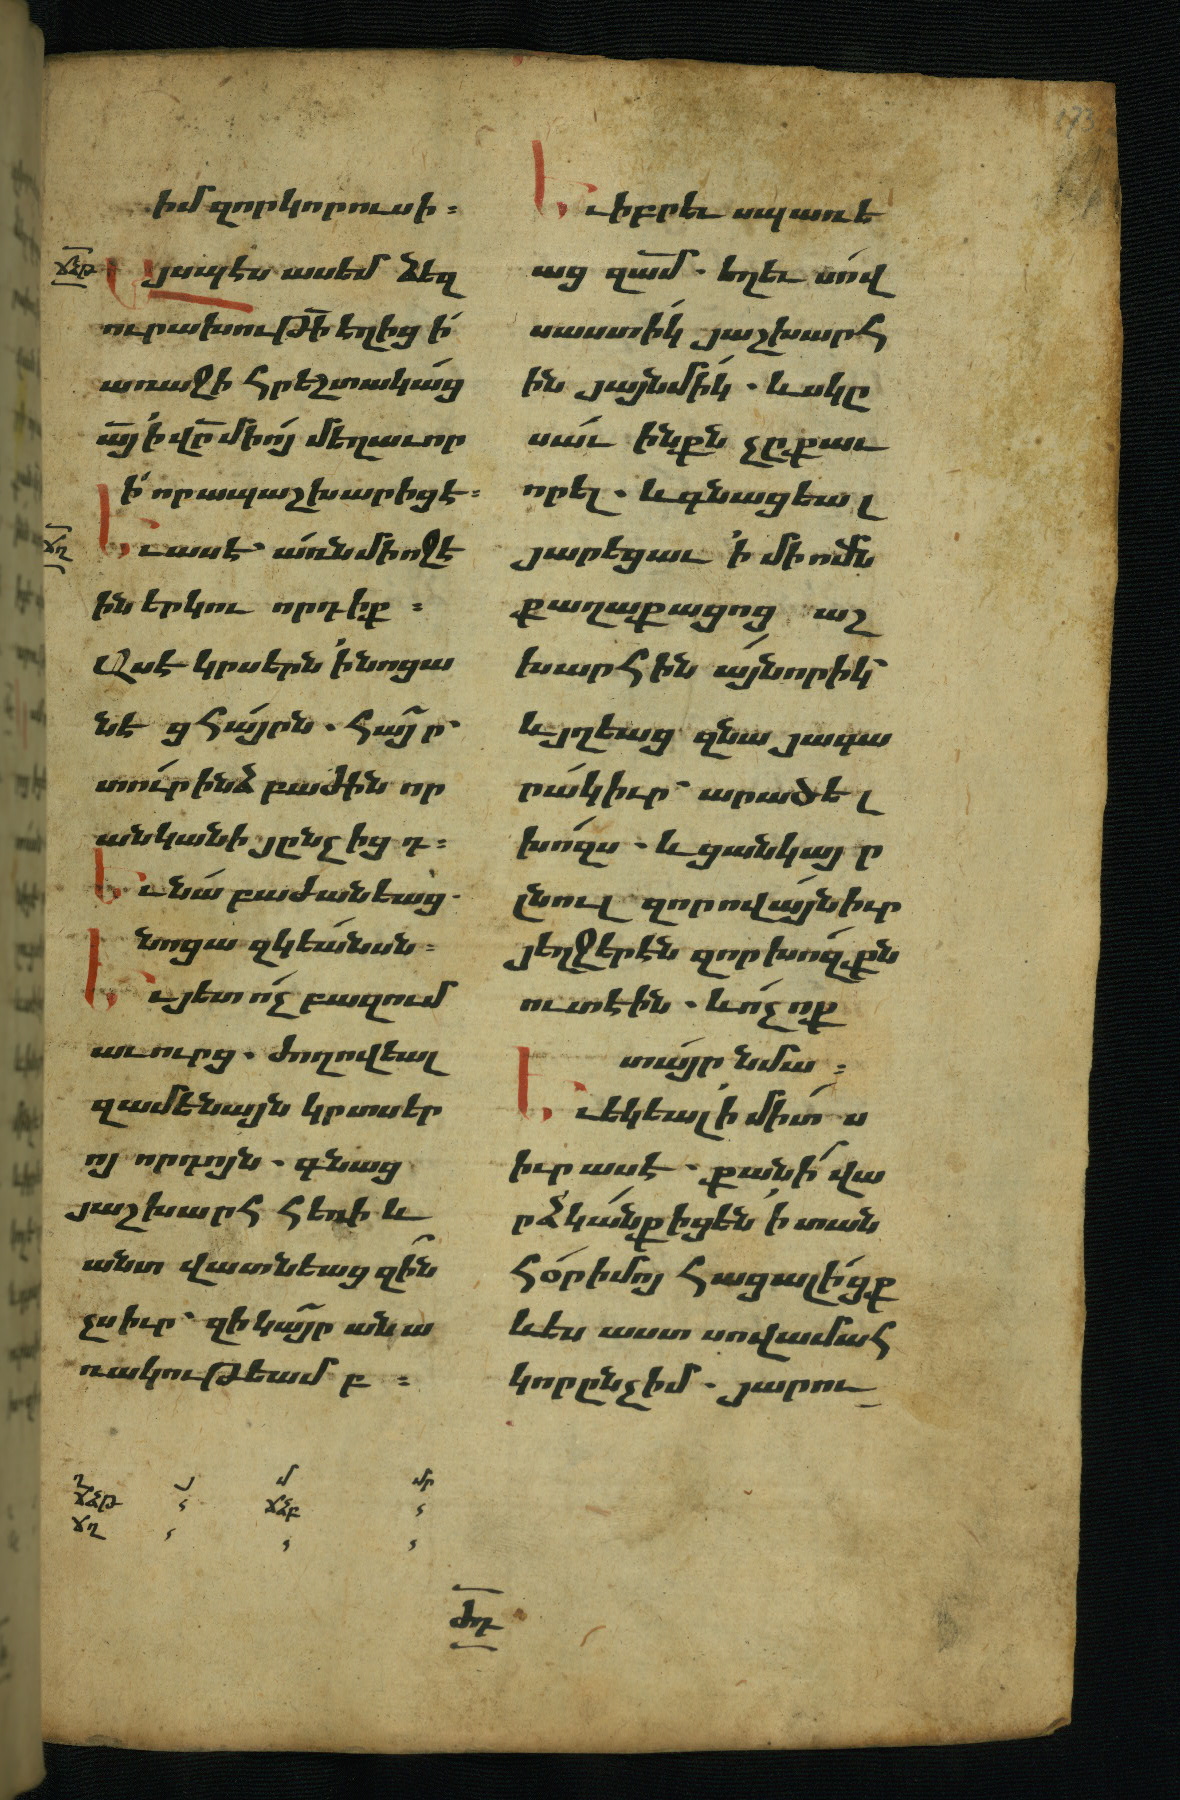 իմ զոր կորուսի։
ՃՁԹ Այսպէս ասեմ ձեզ
ուրախութի՟ եղիցի
առաջի հրեշտակաց
ա՟յ ի վր՟ միոյ մեղաւոր
ի որ ապաշխարիցէ։
ՃՂ Եւ ասէ առն միոջ է
ին երկու որդիք։
Ասէ կրսերն ի նոցա
նէ ց հայրն. հայր
տուր ինձ բաժին որ
անկանի յընչիցդ։
Եւ նա բաժանեաց.
նոցա զկեանսն։
Եւ յետ ոչ բազում
աւուրց. ժողովեալ
զամենայն կրտսեր
ոյ որդոյն. գնաց
յաշխարհ հեռի և
անտ վատնեաց զին
չս իւր զի կայր անա
ռակութեամբ։
Եւ իբրեւ սպառե
աց զա՟մ. եղեւ սով
սաստիկ յաշխարհ
ին յայնմիկ. և սկը
սաւ ինքն չըքաւ
որել. և գնացեալ
յարեցաւ ի մի ոմն
քաղաքացոց աշ
խարհին այնորիկ
և յղեաց զնա յագա
րակ իւր արածել
խոզս. և ցանկայր
լնուլ զորովայն իւր
յեղջերէն զոր խոզքն
ուտէին. և ոչ ոք
տայր նմա։
Եւ եկեալ ի միտս
իւր ասէ. քանի վա
րձկանք իցեն ի տան
հօր իմոյ հացալիցք
և ես աստ սովամահ
կորընչիմ. յարու
Ղ Յ Մ Մր
ՃՁԹ ՃՁԲ
ՃՂ
ԺԴ
173